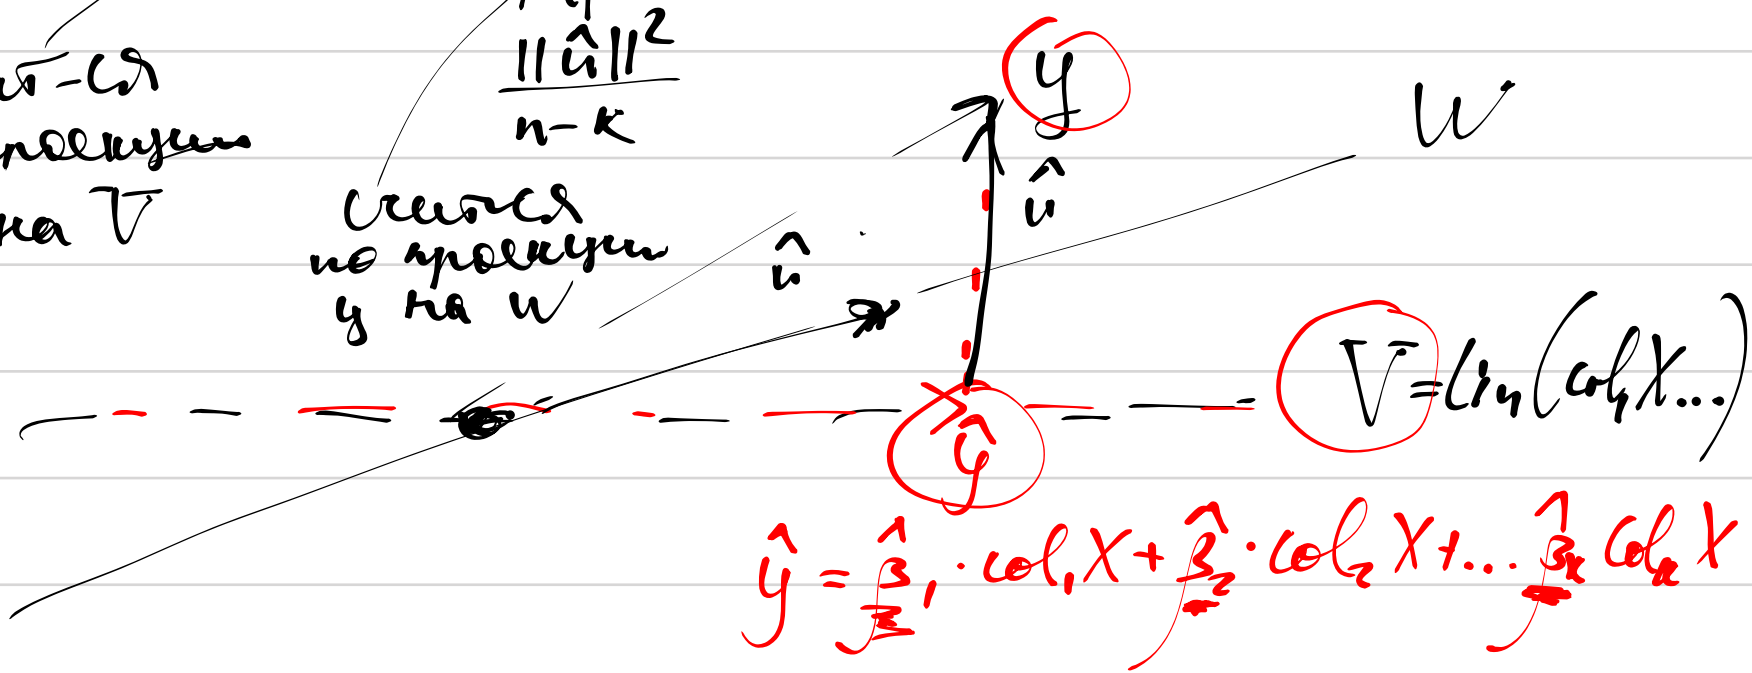 ит-ся
проекции
на V
||û||²
n-k
счится
по проекции
y на W
y
û
W
û
V=Lin(col₁X...)
ŷ
ŷ = β̂₁·col₁X + β̂₂·col₂X+... β̂ₖ colₖ X